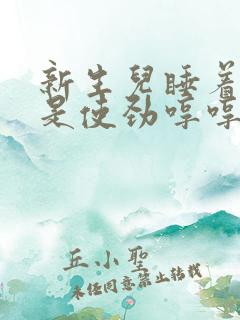 新生兒睡着
是使劲哼哼
丘小聖
未经同意禁止转载